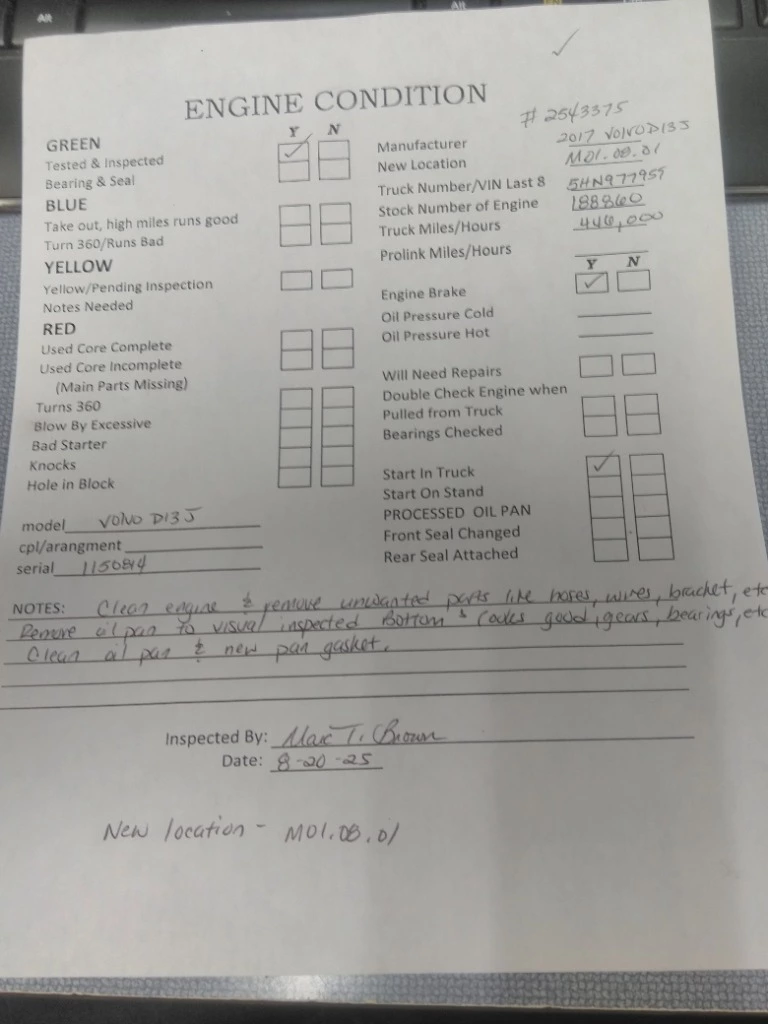 Alt
Alt
ENGINE CONDITION
# 2543375
Y N
GREEN
Tested & Inspected
Bearing & Seal
BLUE
Take out, high miles runs good
Turn 360/Runs Bad
YELLOW
Yellow/Pending Inspection
Notes Needed
RED
Used Core Complete
Used Core Incomplete
(Main Parts Missing)
Turns 360
Blow By Excessive
Bad Starter
Knocks
Hole in Block
model VOLVO D13J
cpl/arangment
serial 1150844
Manufacturer 2017 VOLVO D13J
New Location M01.08.01
Truck Number/VIN Last 8 5HN977959
Stock Number of Engine 188860
Truck Miles/Hours 446,000
Prolink Miles/Hours
Y N
Engine Brake
Oil Pressure Cold
Oil Pressure Hot
Will Need Repairs
Double Check Engine when
Pulled from Truck
Bearings Checked
Start In Truck
Start On Stand
PROCESSED OIL PAN
Front Seal Changed
Rear Seal Attached
NOTES: Clean engine & remove unwanted parts like hoses, wires, bracket, etc
Remove oil pan to visual inspected Bottom & looks good, gears, bearings, etc
Clean oil pan & new pan gasket.
Inspected By: Marc T. Brown
Date: 8-20-25
New location - M01.08.01